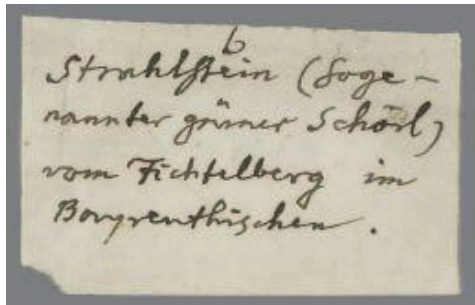 6
Strahlstein (Soge-
nannter grüner Schörl)
vom Fichtelberg im
Bayreuthischen.